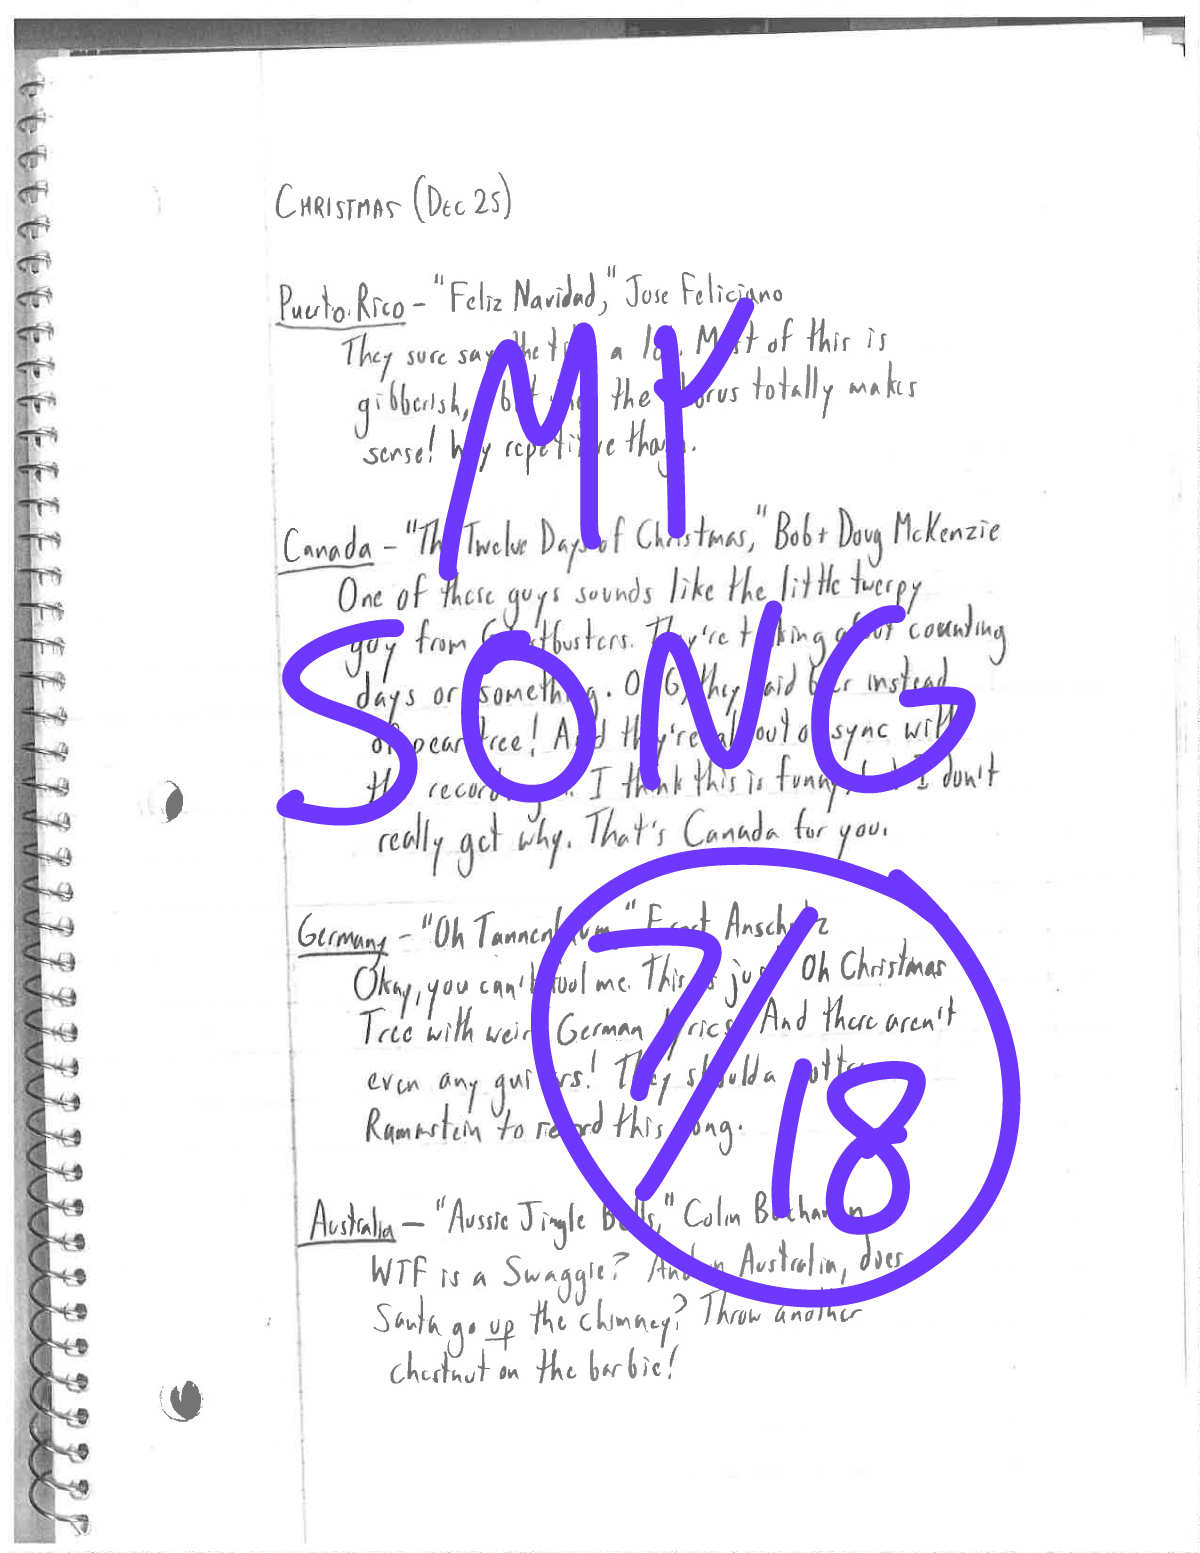 CHRISTMAS (DEC 25)
Puerto Rico - "Feliz Navidad," Jose Feliciano
They sure say the title a lot. Most of this is
gibberish, but the chorus totally makes
sense! Way repetitive though.
Canada - "The Twelve Days of Christmas," Bob + Doug McKenzie
One of these guys sounds like the little twerpy
guy from Ghostbusters. They're talking about counting
days or something. OMG, they said beer instead
of pear tree! And they're all out of sync with
the recording. I think this is funny, but I don't
really get why. That's Canada for you.
Germany - "Oh Tannenbaum," Ernst Anschutz
Okay, you can't fool me. This is just Oh Christmas
Tree with weird German lyrics. And there aren't
even any guitars! They shoulda gotten
Rammstein to record this song.
Australia - "Aussie Jingle Bells," Colin Buchanan
WTF is a Swaggie? And in Australia, does
Santa go up the chimney? Throw another
chestnut on the barbie!
MY
SONG
7/18